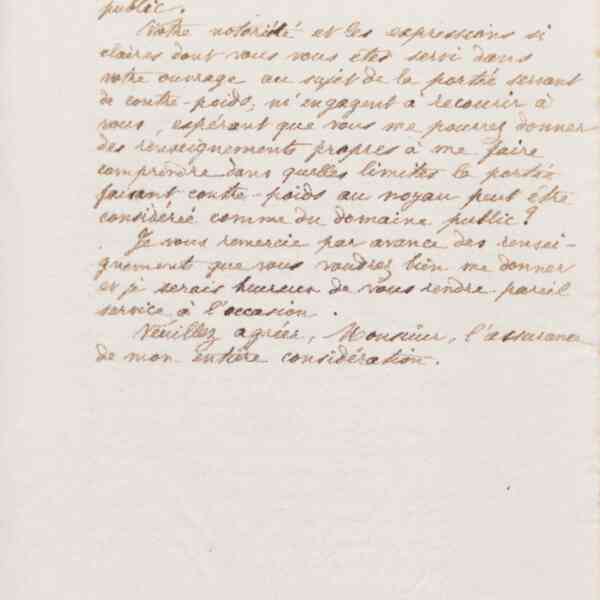 public.
Votre notoriété et les expressions si
claires dont vous vous êtes servi dans
votre ouvrage au sujet de la portée servant
de contre-poids, m'engagent à recourir à
vous, espérant que vous me pourrez donner
des renseignements propres à me faire
comprendre dans quelles limites la portée
faisant contre-poids au noyau peut être
considérée comme du domaine public?
Je vous remercie par avance des rensei-
gnements que vous voudrez bien me donner
et je serais heureux de vous rendre pareil
service à l'occasion.
Veuillez agréer, Monsieur, l'assurance
de mon entière considération.